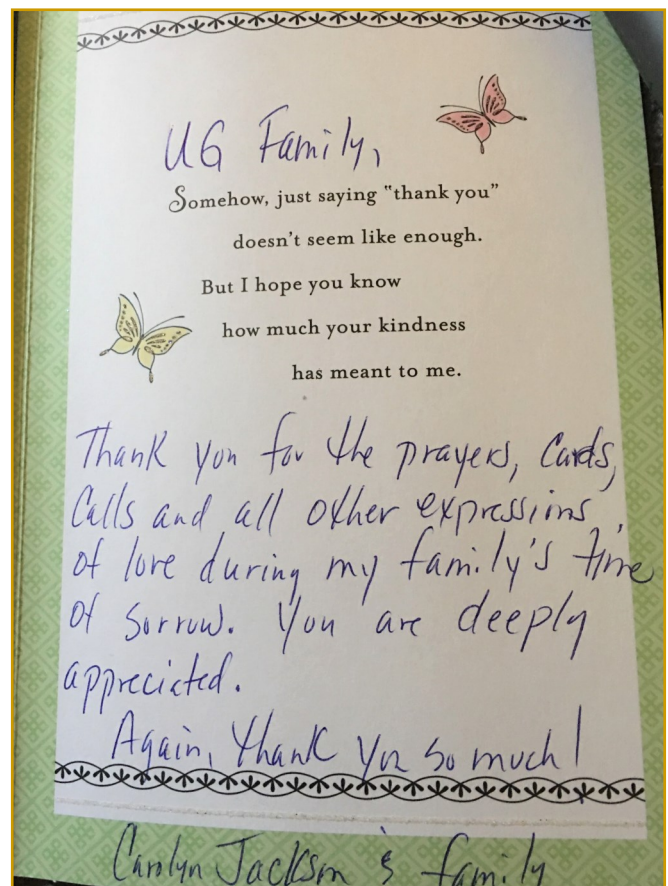 UG Family,
Somehow, just saying "thank you"
doesn't seem like enough.
But I hope you know
how much your kindness
has meant to me.
Thank you for the prayers, Cards,
Calls and all other expressions
of love during my family's time
of sorrow. You are deeply
appreciated.
Again, thank you so much!
Carolyn Jackson & family